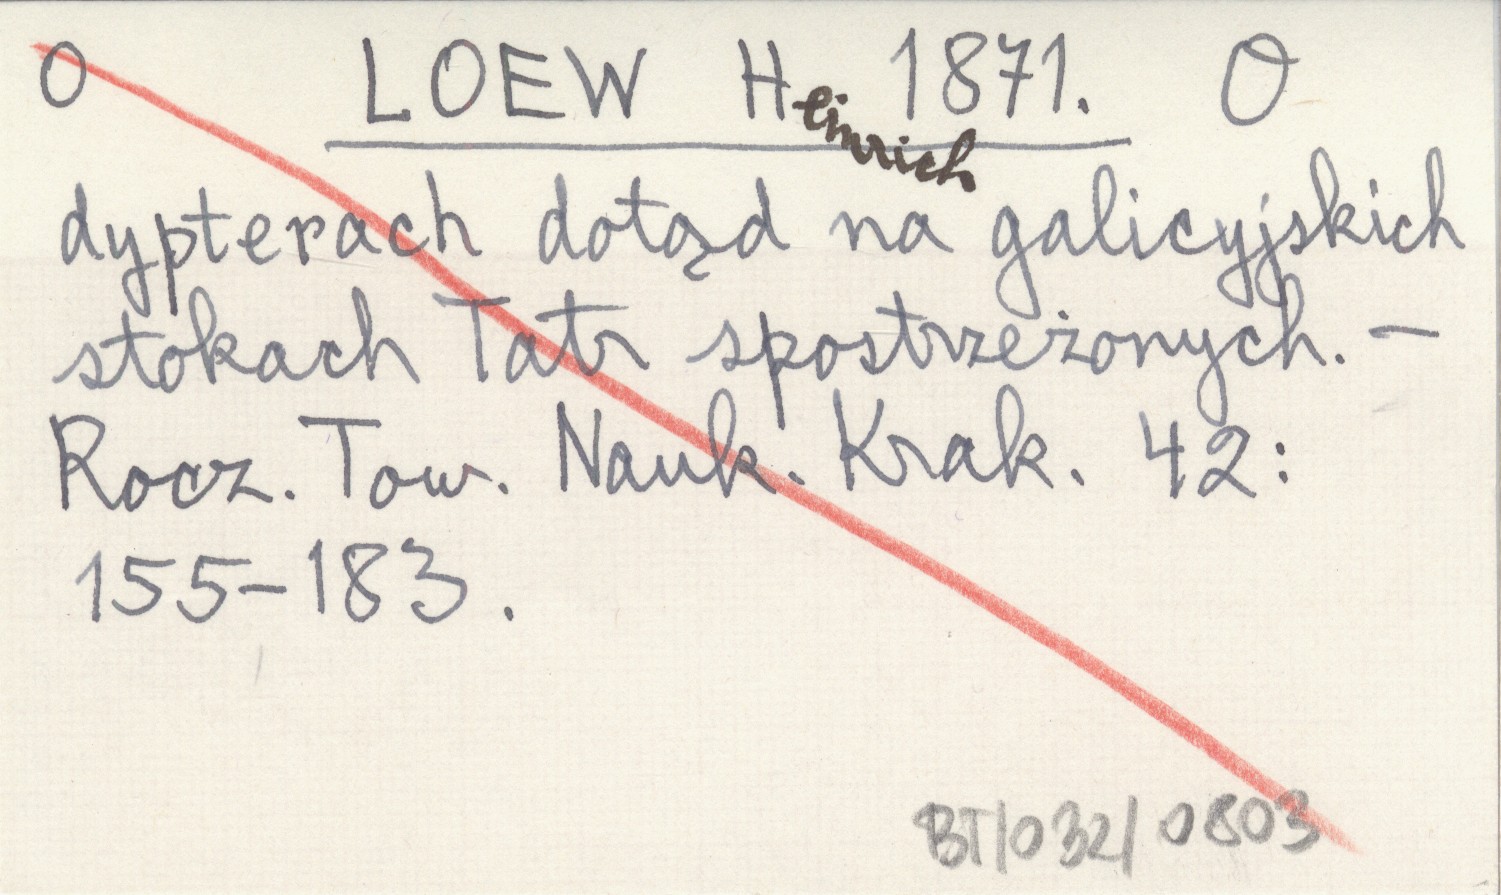 O LOEW Heinrich 1871. O
dypterach dotąd na galicyjskich
stokach Tatr spostrzeżonych. –
Rocz. Tow. Nauk. Krak. 42:
155–183.
BT/032/0803